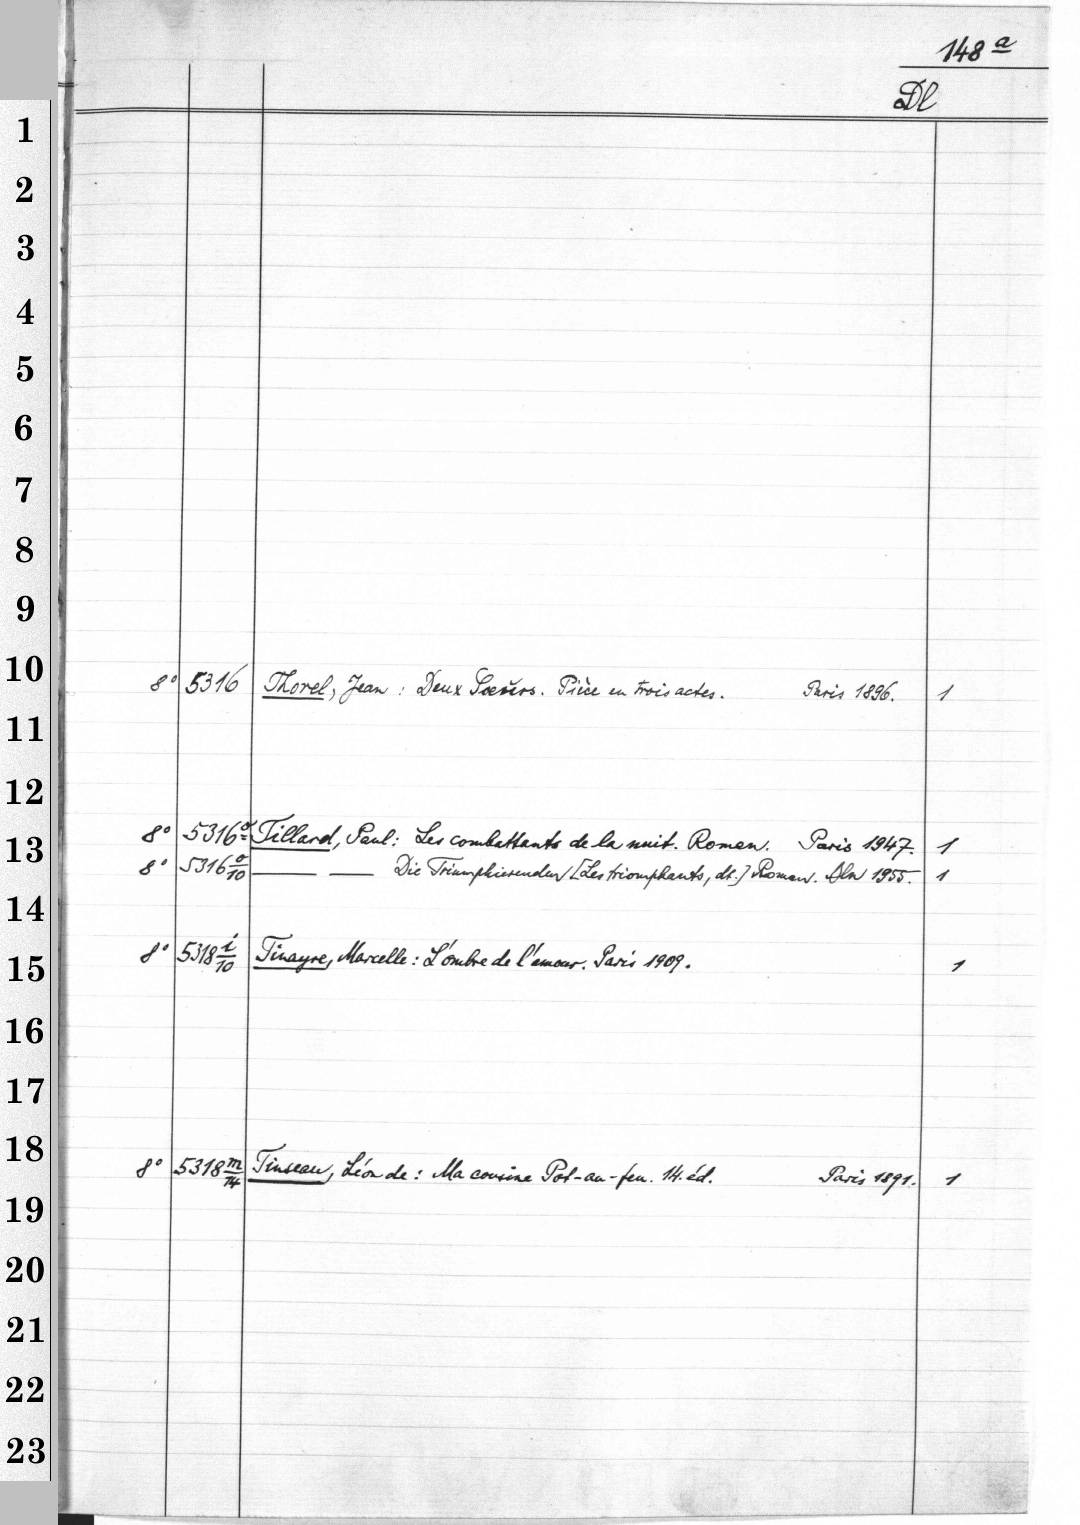 148 a
Dl
1
2
3
4
5
6
7
8
9
10
8° 5316 Thorel, Jean : Deux Soeurs. Pièce en trois actes. Paris 1896. 1
11
12
8° 5316 a Tillard, Paul: Les combattants de la nuit. Roman. Paris 1947. 1
13
8° 5316 a/10 — — Die Triumphierenden [Les triomphants, dt.] Roman. Bln 1955. 1
14
8° 5318 i/10 Tinayre, Marcelle: L'ombre de l'amour. Paris 1909. 1
15
16
17
18
8° 5318 m/14 Tinseau, Léon de : Ma cousine Pot-au-feu. 14. éd. Paris 1891. 1
19
20
21
22
23